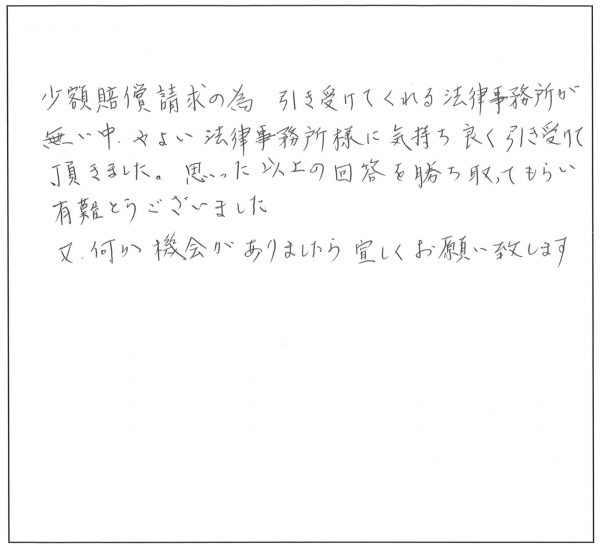 少額賠償請求の為 引き受けてくれる法律事務所が
無い中、やよい法律事務所様に気持ち良く引き受けて
頂きました。思った以上の回答を勝ち取ってもらい
有難とうございました
又、何か機会がありましたら宜しくお願い致します